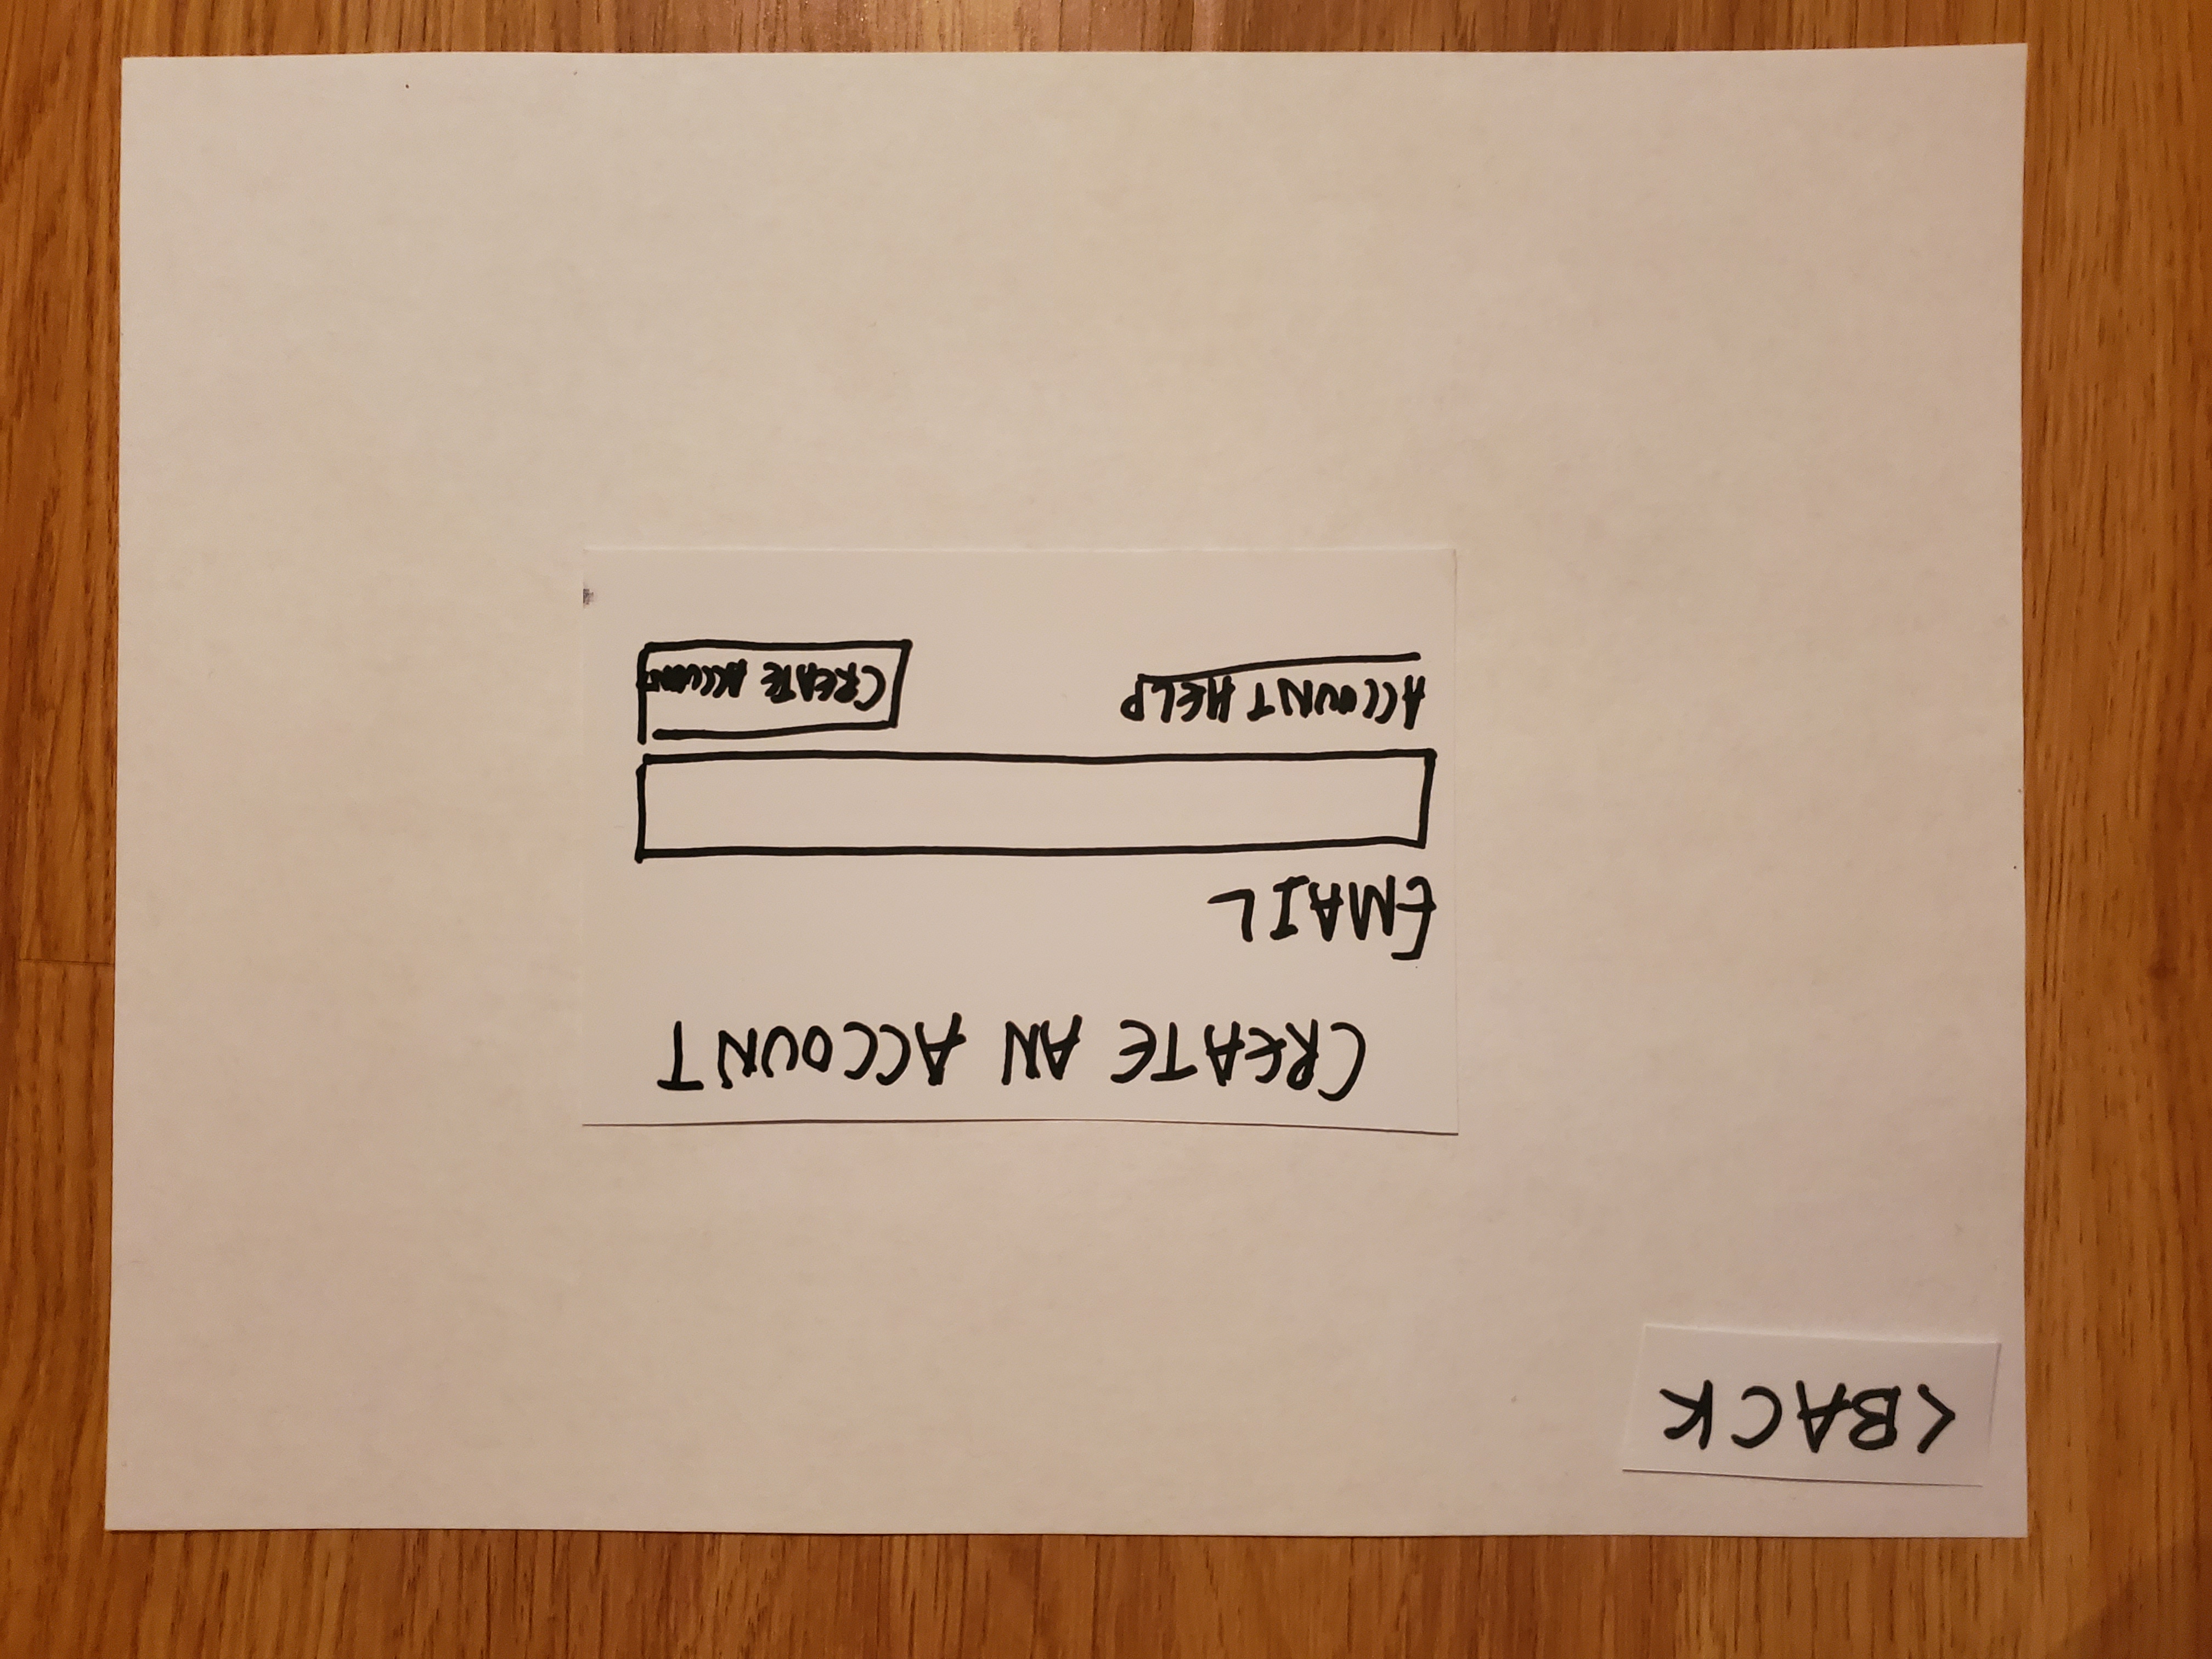 <BACK
CREATE AN ACCOUNT
EMAIL
ACCOUNT HELP
CREATE ACCOUNT